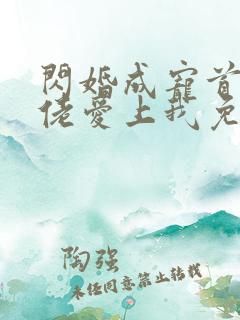 閃婚成寵首
佬愛上我免
陶强
未经同意禁止转载